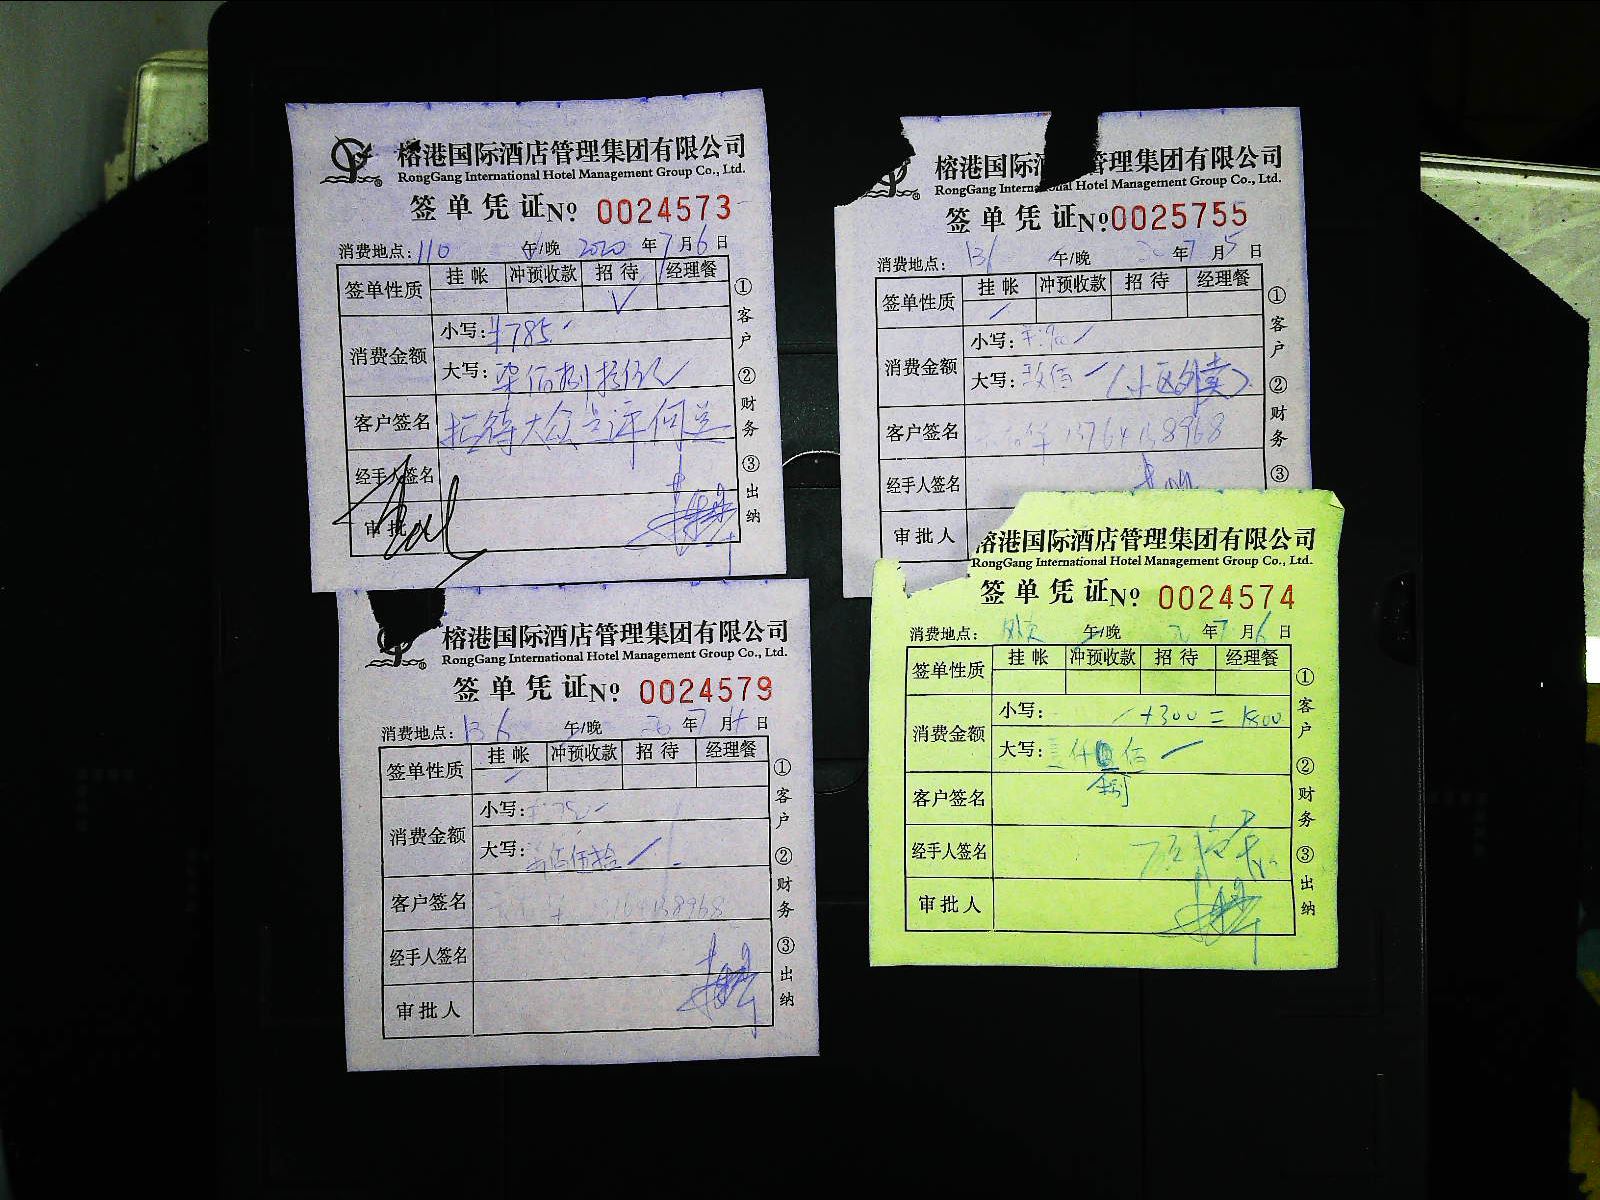 榕港国际酒店管理集团有限公司
RongGang International Hotel Management Group Co., Ltd.
签单凭证 Nº 0024573
消费地点: 110 午/晚 2020 年 7 月 6 日
签单性质 挂帐 冲预收款 招待 经理餐
✓
消费金额 小写: ¥785
大写: 柒佰捌拾伍元
客户签名 招待大众点评何总
经手人签名
审批
①客户 ②财务 ③出纳
榕港国际酒 管理集团有限公司
RongGang International Hotel Management Group Co., Ltd.
签单凭证 Nº 0025755
消费地点: 131 午/晚 20 年 7 月 5 日
签单性质 挂帐 冲预收款 招待 经理餐
消费金额 小写:
大写: 玖佰 (小区外卖)
客户签名 13764138968
经手人签名
审批人
①客户 ②财务 ③
榕港国际酒店管理集团有限公司
RongGang International Hotel Management Group Co., Ltd.
签单凭证 Nº 0024579
消费地点: 136 午/晚 20 年 7 月 日
签单性质 挂帐 冲预收款 招待 经理餐
消费金额 小写:
大写: 佰伍拾
客户签名 138968
经手人签名
审批人
①客户 ②财务 ③出纳
榕港国际酒店管理集团有限公司
RongGang International Hotel Management Group Co., Ltd.
签单凭证 Nº 0024574
消费地点: 午/晚 20 年 7 月 6 日
签单性质 挂帐 冲预收款 招待 经理餐
消费金额 小写: +300 = 1800
大写: 仟 佰
客户签名
经手人签名
审批人
①客户 ②财务 ③出纳